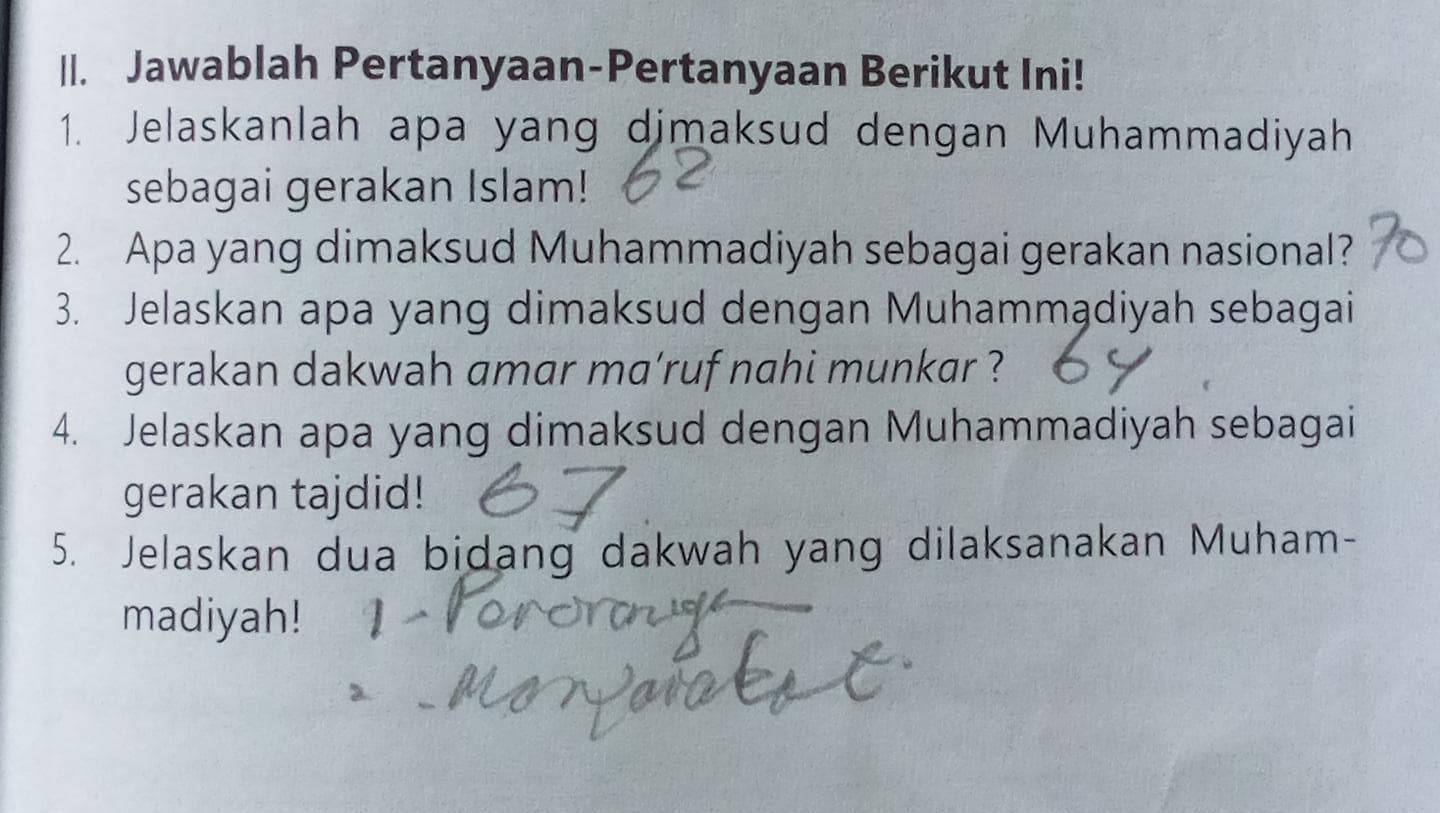 II. Jawablah Pertanyaan-Pertanyaan Berikut Ini!
1. Jelaskanlah apa yang dimaksud dengan Muhammadiyah
sebagai gerakan Islam! 62
2. Apa yang dimaksud Muhammadiyah sebagai gerakan nasional? 70
3. Jelaskan apa yang dimaksud dengan Muhammadiyah sebagai
gerakan dakwah amar ma'ruf nahi munkar ? 64
4. Jelaskan apa yang dimaksud dengan Muhammadiyah sebagai
gerakan tajdid! 67
5. Jelaskan dua bidang dakwah yang dilaksanakan Muham-
madiyah! 1 -
2 -